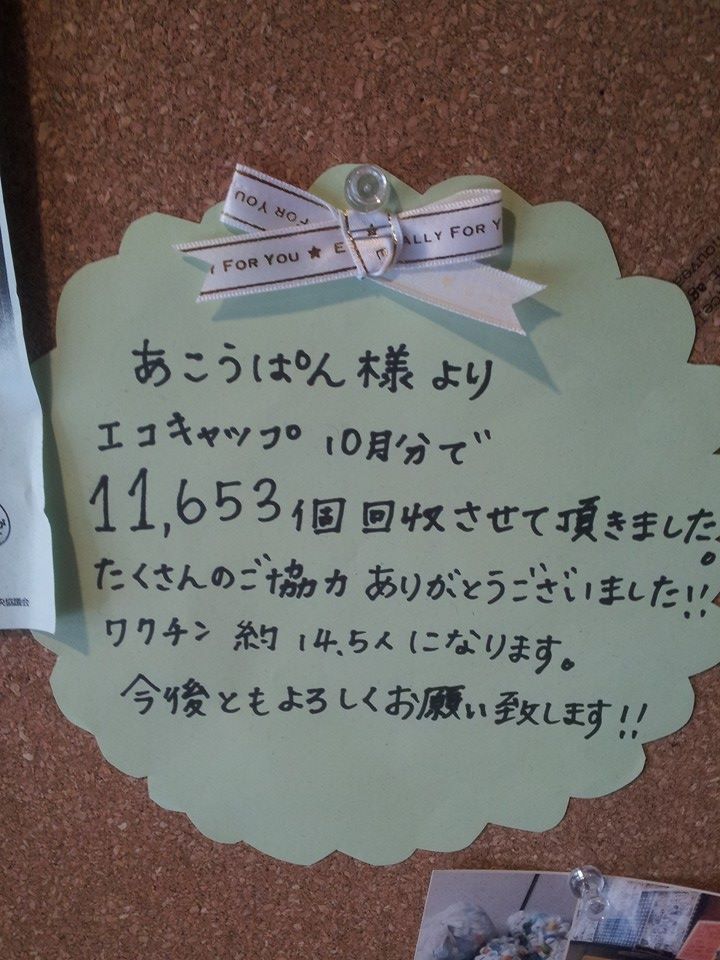 FOR YOU
FOR YOU
Y FOR YOU ★ E
ALLY FOR Y
あこうぱん様より
エコキャップ 10月分で
11,653個回収させて頂きました。
たくさんのご協力ありがとうございました!!
ワクチン 約14.5人になります。
今後ともよろしくお願い致します!!
協議会